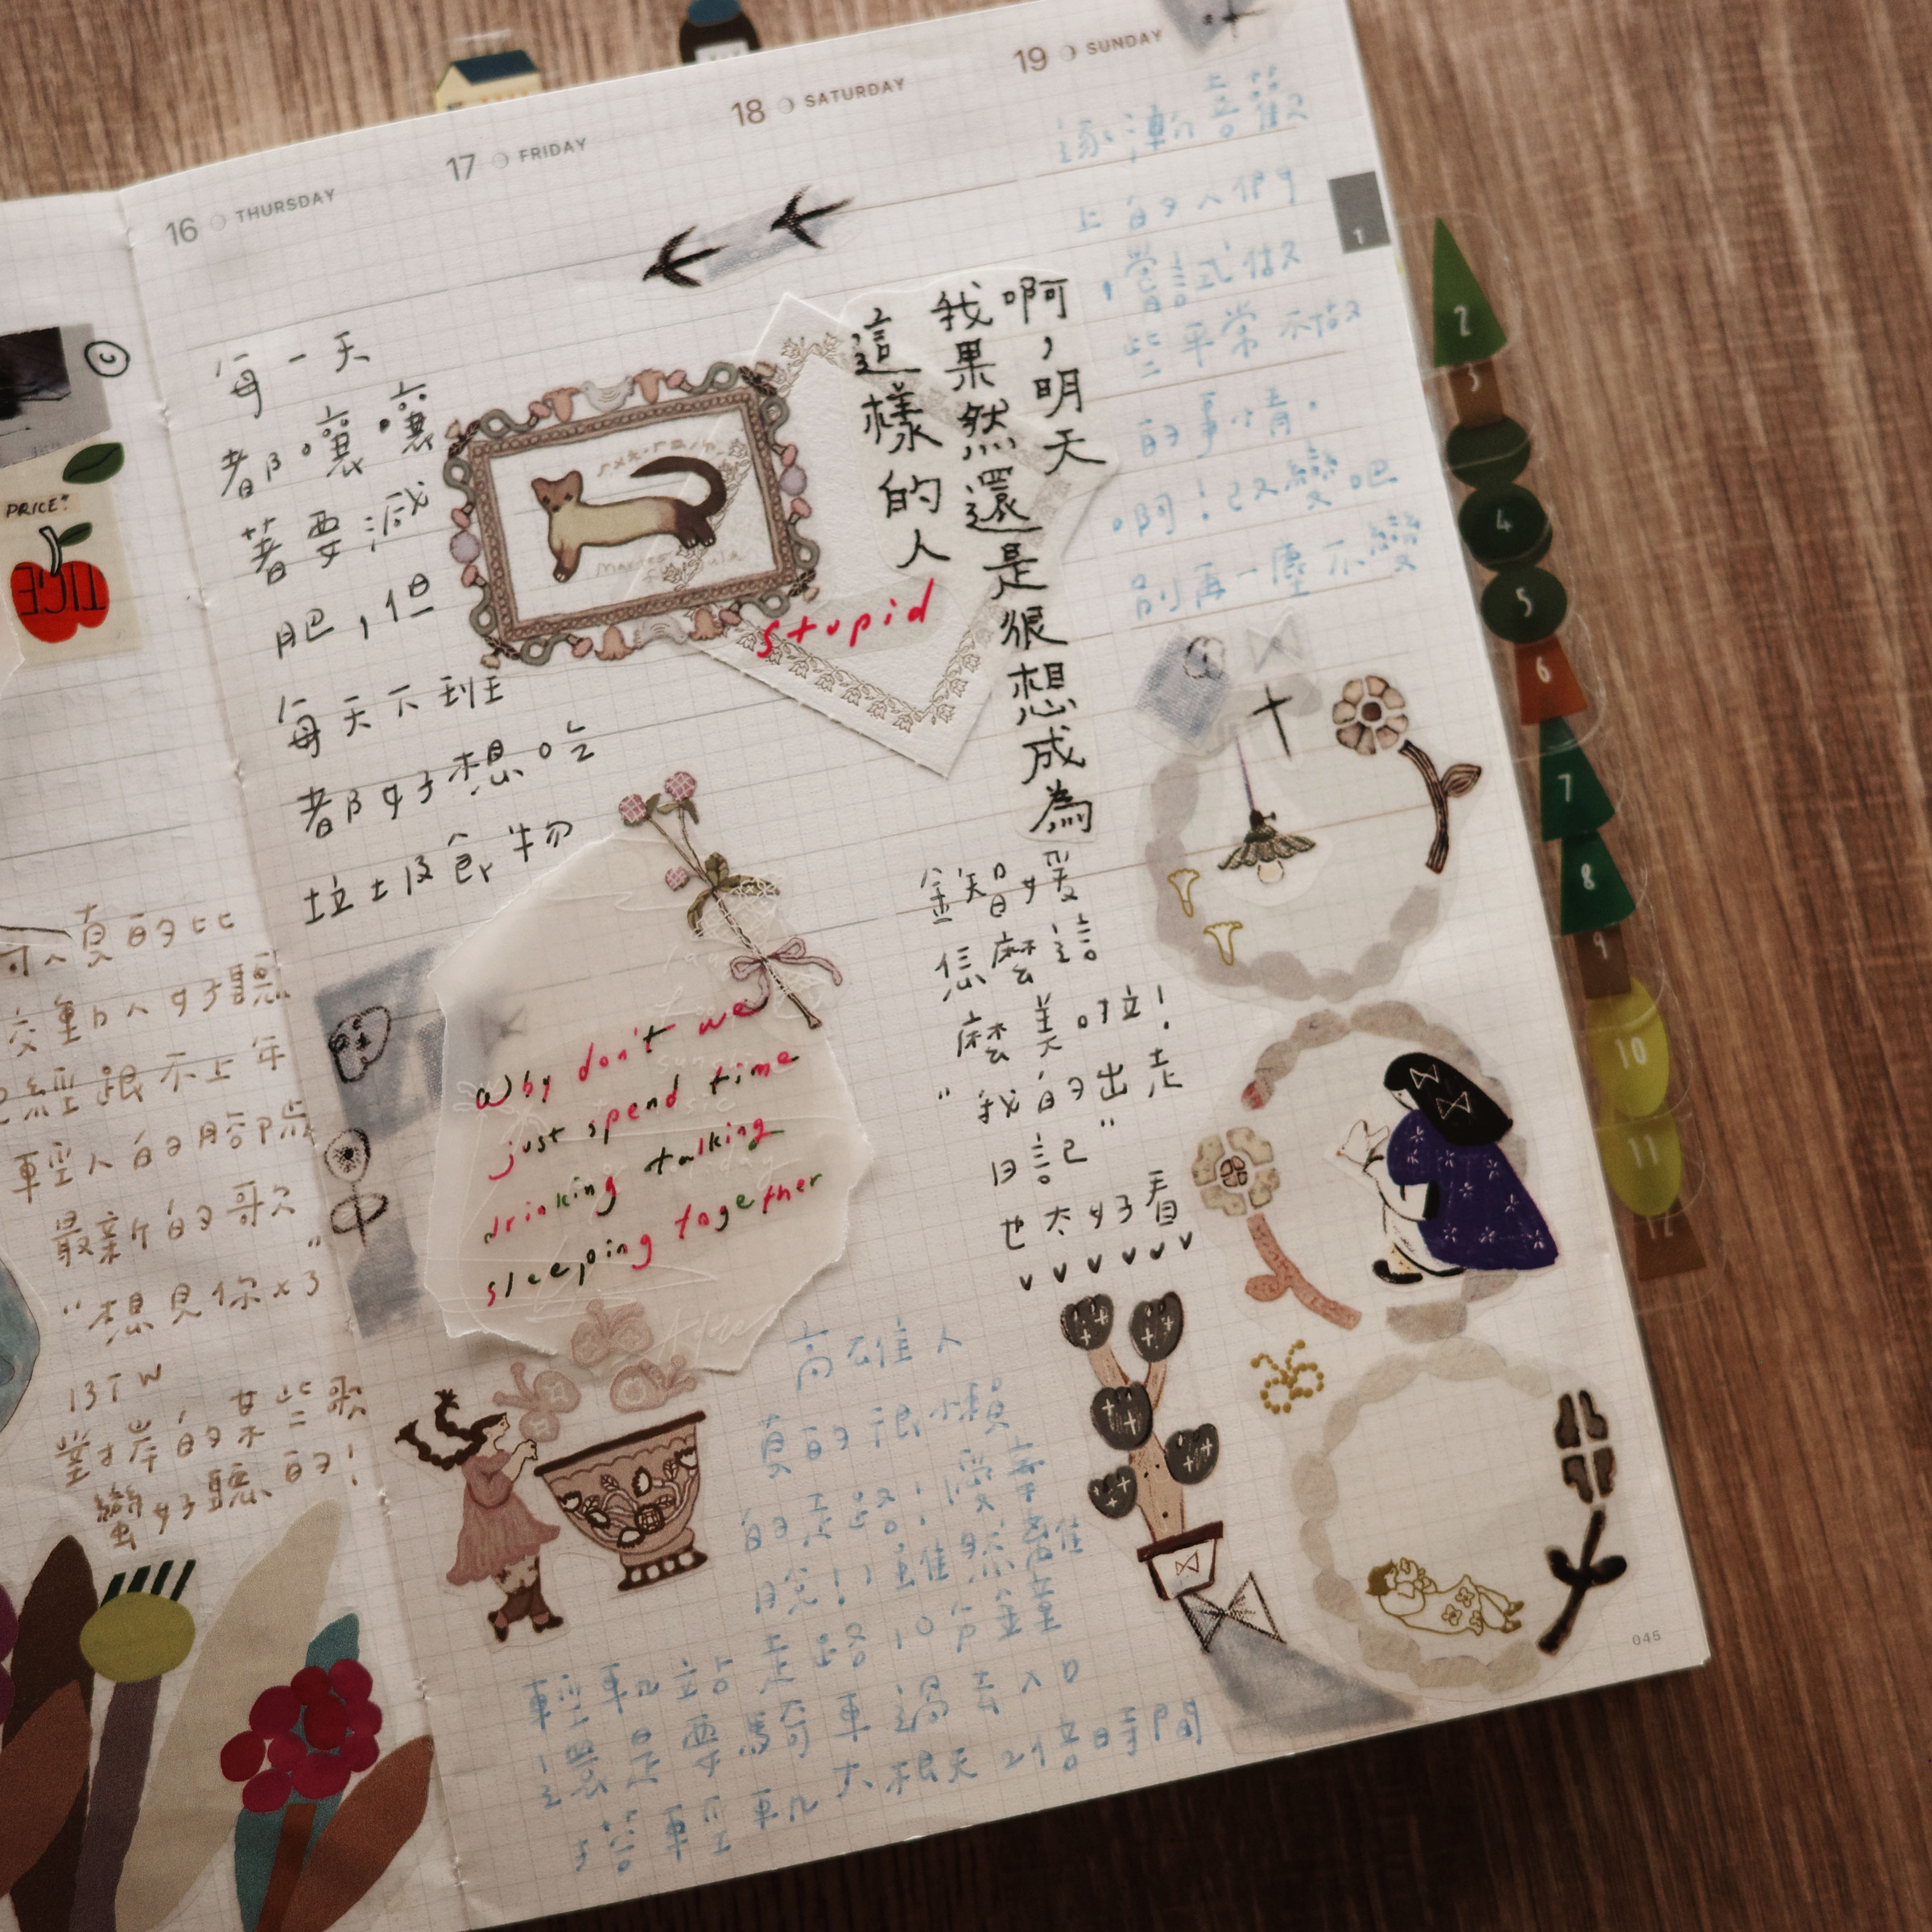 16 THURSDAY
17 FRIDAY
18 SATURDAY
19 SUNDAY
1
每一天
都嚷嚷
著要減
肥，但
每天下班
都好想吃
垃圾食物
啊，明天
我果然還是很想成為
這樣的人
stupid
逐漸喜歡
上自己們
，嘗試做
些平常不做
的事情，
啊！改變吧
別再一塵不變
Why don't we
just spend time
drinking talking
sleeping together
金智媛
怎麼這
麼美啦！
"我的出走
日記"
也太好看
高雄人
真的很懶
的走路！愛幸
脫！！雖然高雄
走路10分鐘
輕軌站
還是要騎車過去入口
搭輕軌大概天2倍時間
PRICE:
真的比
交重口人好聽
已經跟不上年
輕人的腳步
最新的歌
"想見你x3"
13TW
對岸的某些歌
蠻好聽的！
2
3
4
5
6
7
8
9
10
11
12
045